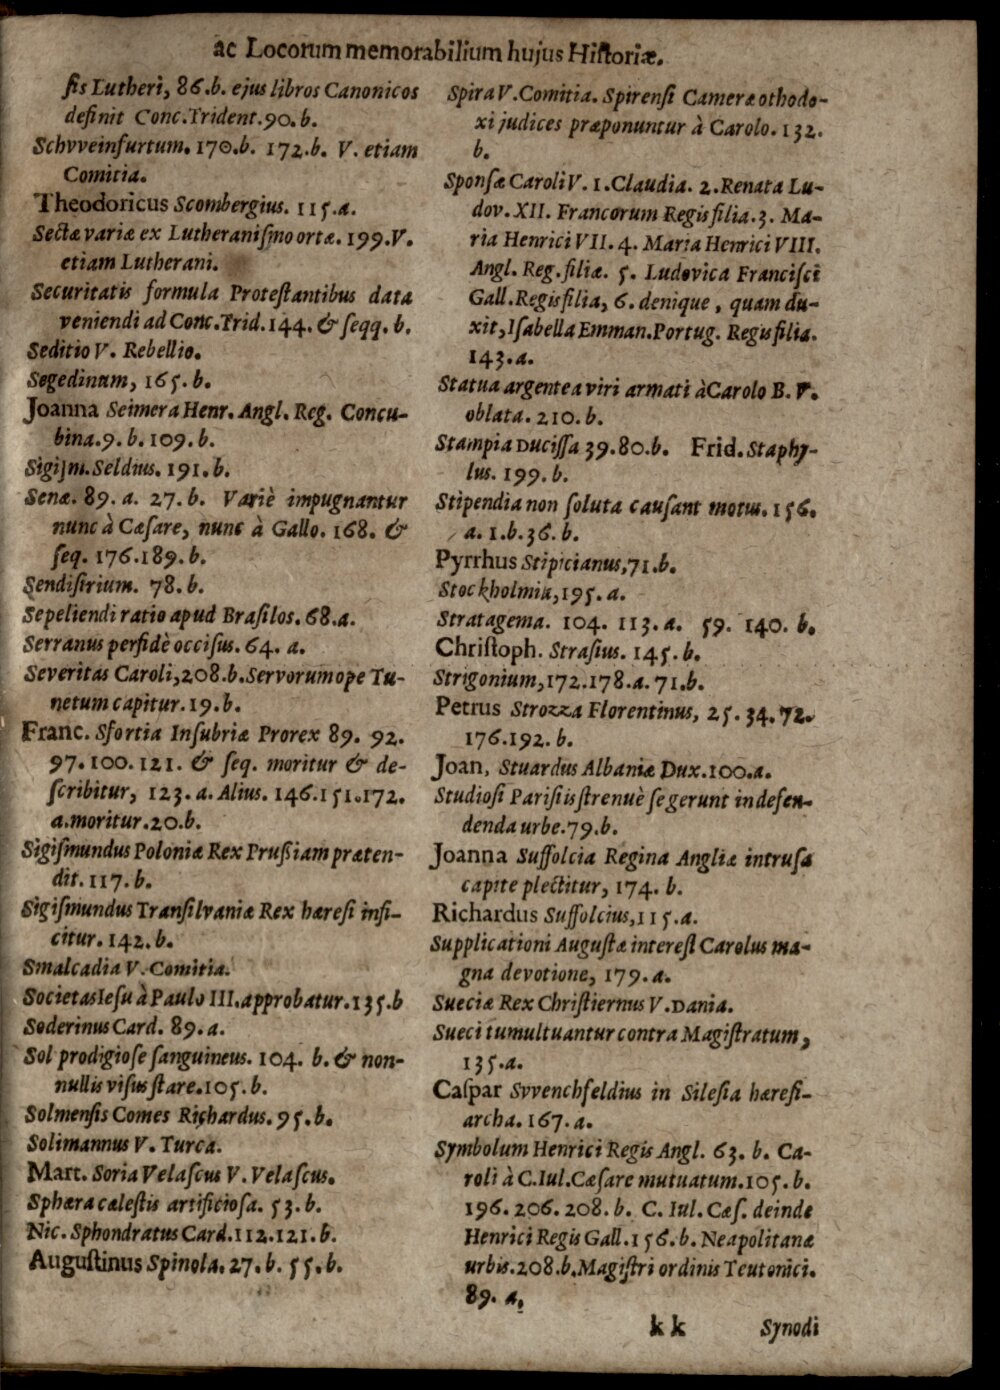 ac Locorum memorabilium hujus Historiæ.
sis Lutheri, 86.b. ejus libros Canonicos
definit Conc.Trident.90.b.
Schvveinfurtum. 170.b. 172.b. V. etiam
Comitia.
Theodoricus Scombergius. 115.a.
Sectæ variæ ex Lutheranismo ortæ. 199.V.
etiam Lutherani.
Securitatis formula Protestantibus data
veniendi ad Conc.Trid.144. & seqq. b.
Seditio V. Rebellio.
Segedinum, 165.b.
Joanna Seimera Henr. Angl. Reg. Concu-
bina.9.b.109.b.
Sigism. Seldius. 191.b.
Senæ. 89. a. 27. b. Variè impugnantur
nunc à Cæsare, nunc à Gallo. 168. &
seq. 176.189.b.
Sendisirium. 78.b.
Sepeliendi ratio apud Brasilos. 68.a.
Serranus perfidè occisus. 64. a.
Severitas Caroli, 208.b. Servorum ope Tu-
netum capitur. 19.b.
Franc. Sfortia Insubriæ Prorex 89. 92.
97.100.121. & seq. moritur & de-
scribitur, 123. a. Alius. 146.151.172.
a.moritur.20.b.
Sigismundus Poloniæ Rex Prußiam præten-
dit. 117.b.
Sigismundus Transilvaniæ Rex hæresi infi-
citur. 142.b.
Smalcadia V. Comitia.
Societas Iesu à Paulo III. approbatur.135.b
Soderinus Card. 89.a.
Sol prodigiose sanguineus. 104. b. & non-
nullis visus stare.105.b.
Solmensis Comes Richardus. 95.b.
Solimannus V. Turca.
Mart. Soria Velascus V. Velascus.
Sphæra cælestis artificiosa. 53.b.
Nic. Sphondratus Card.112.121.b.
Augustinus Spinola. 27.b. 55.b.
Spira V. Comitia. Spirensi Cameræ othodo-
xi judices præponuntur à Carolo. 132.
b.
Sponsæ Caroli V. 1. Claudia. 2. Renata Lu-
dov. XII. Francorum Regis filia. 3. Ma-
ria Henrici VII. 4. Maria Henrici VIII.
Angl. Reg. filiæ. 5. Ludovica Francisci
Gall. Regis filia, 6. denique, quam du-
xit, Isabella Emman. Portug. Regis filia.
143.a.
Statua argentea viri armati à Carolo B. V.
oblata. 210.b.
Stampia DUCissa 39.80.b. Frid. Staphy-
lus. 199.b.
Stipendia non soluta causant motus. 156.
a. 1.b.36.b.
Pyrrhus Stipicianus, 71.b.
Stockholmia, 195. a.
Stratagema. 104. 113.a. 59. 140. b.
Christoph. Strasius. 145.b.
Strigonium, 172.178.a. 71.b.
Petrus Strozza Florentinus, 25. 34. 72.
176.192. b.
Joan, Stuardus Albaniæ Dux.100.a.
Studiosi Parisiis strenuè se gerunt in defen-
denda urbe.79.b.
Joanna Suffolcia Regina Angliæ intrusa
capite plectitur, 174. b.
Richardus Suffolcius, 115.a.
Supplicationi Augustæ interest Carolus ma-
gna devotione, 179. a.
Sueciæ Rex Christiernus V. DANIA.
Sueci tumultuantur contra Magistratum,
135.a.
Caspar Svvenchfeldius in Silesia hæresi-
archa. 167.a.
Symbolum Henrici Regis Angl. 63. b. Ca-
roli à C. Iul. Cæsare mutuatum.105.b.
196.206.208.b. C. Iul. Cæs. deinde
Henrici Regis Gall.156.b. Neapolitanæ
urbis.208.b. Magistri ordinis Teutonici.
89. a.
k k Synodi